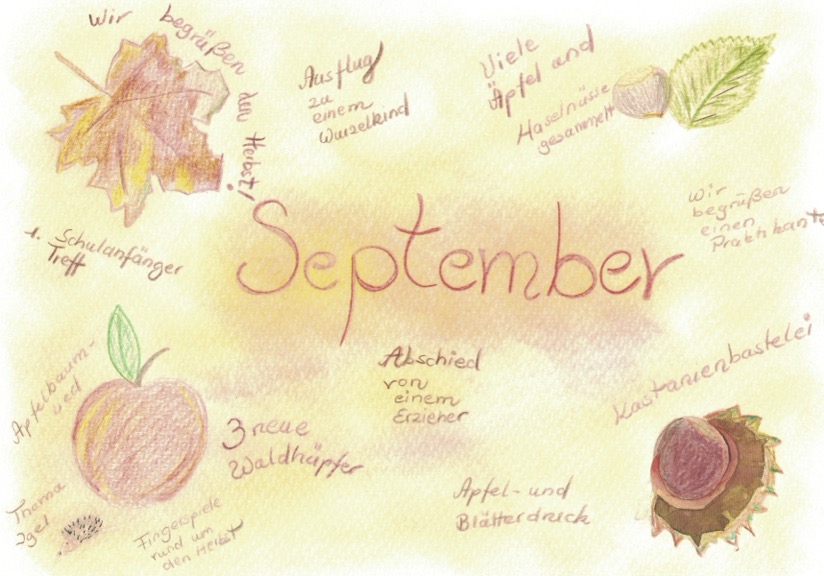 Wir begrüßen den Herbst!
Ausflug
zu
einem
Wurzelkind
Viele
Äpfel und
Haselnüsse
gesammelt
Wir
begrüßen
einen
Praktikanten
1. Schulanfänger
Treff
September
Apfelbaum-
lied
3 neue
Waldhüpfer
Abschied
von
einem
Erzieher
Kastanienbastelei
Thema
Igel
Fingerspiele
rund um
den Herbst
Apfel- und
Blätterdruck